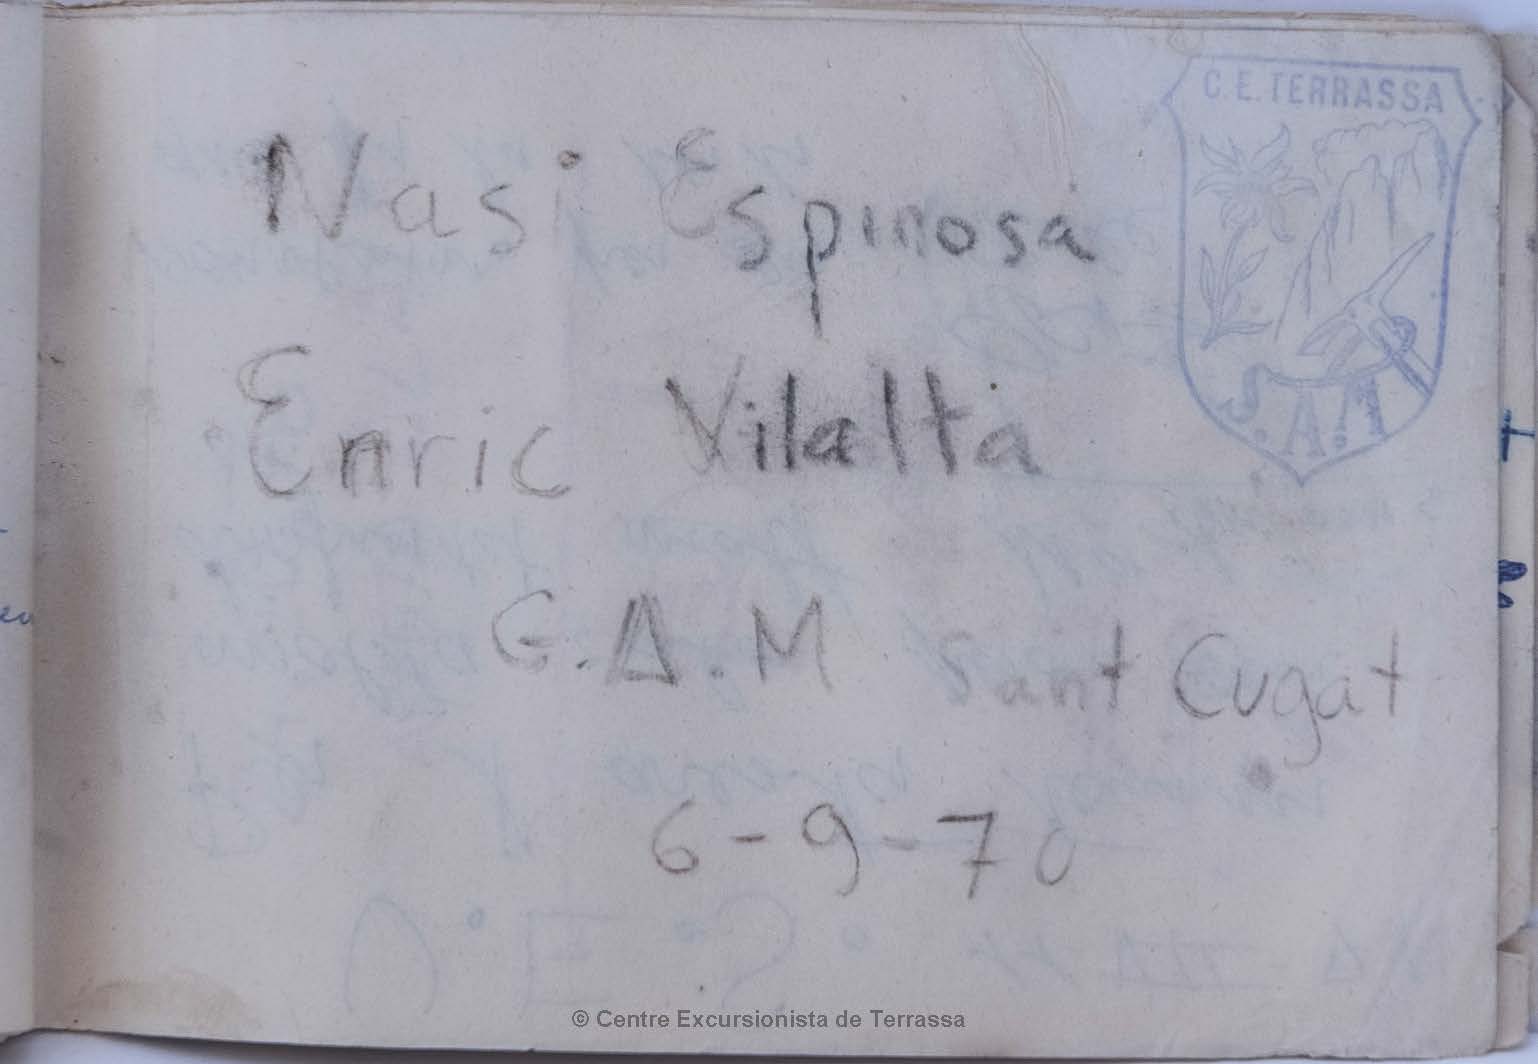 C.E. TERRASSA
Nasi Espinosa
Enric Vilalta
S.A.T
G.A.M Sant Cugat
6-9-70
© Centre Excursionista de Terrassa